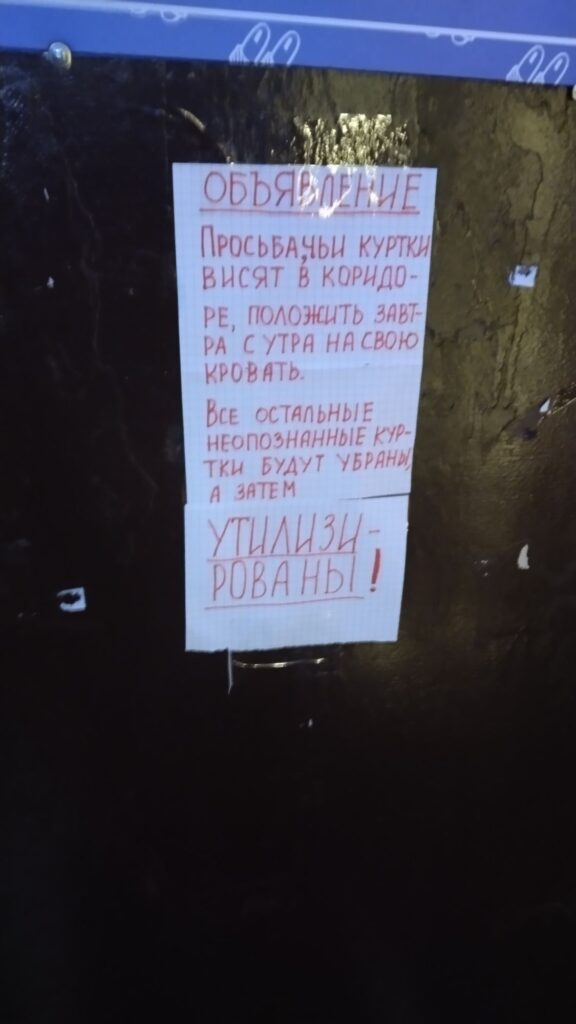 ОБЪЯВЛЕНИЕ
ПРОСЬБА, ЧЬИ КУРТКИ
ВИСЯТ В КОРИДО-
РЕ, ПОЛОЖИТЬ ЗАВТ-
РА С УТРА НА СВОЮ
КРОВАТЬ.
ВСЕ ОСТАЛЬНЫЕ
НЕОПОЗНАННЫЕ КУР-
ТКИ БУДУТ УБРАНЫ,
А ЗАТЕМ
УТИЛИЗИ-
РОВАНЫ!